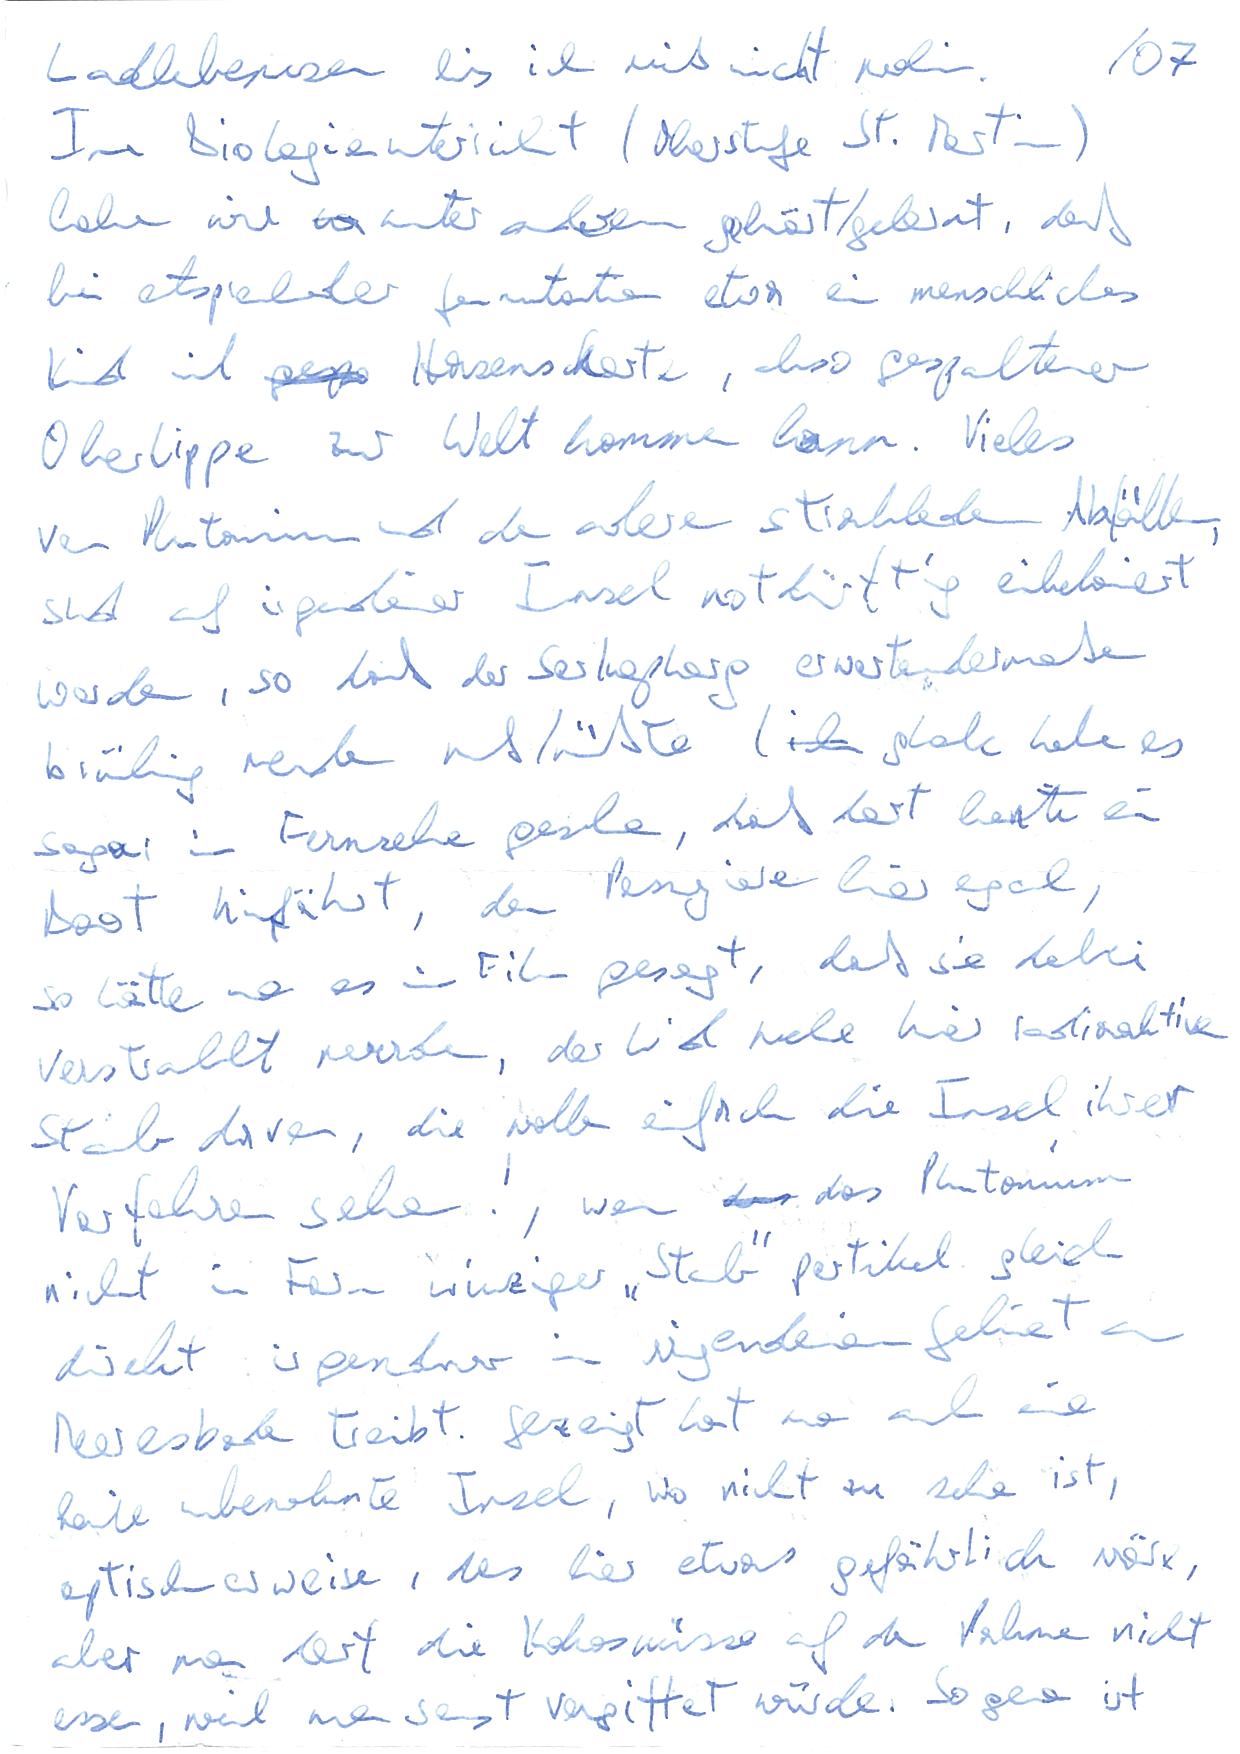 bis ich mich nicht /07
Im Biologieunterricht (Oberstufe St. Martin)
haben wir unter anderem gehört/gelernt, daß
bei etspechender genmutation etwa ein menschliches
Kind mit Hasenscharte, also gespaltener
Oberlippe zur Welt kommen kann. Vieles
von Plutonium und den anderen strahlenden Abfällen,
sind auf irgendeiner Insel notdürftig einbetoniert
worden, so daß der erwartendermaßen
brüchig werden muß/müßte (ich glaube habe es
sogar im Fernsehen gesehen, daß dort heute ein
Boot hinfährt, den Passagieren hier egal,
so hätte man es im Film gesagt, daß sie dabei
verstrahlt werden, der Wind wehe hier radioaktiven
Staub davon, die wollen einfach die Insel ihrer
Vorfahren sehen!, wenn das das Plutonium
nicht in Form winziger „Staub" partikel gleich
direkt irgendwo in irgendeinem gebiet am
Meeresboden treibt. gezeigt hat man auch eine
heute unbewohnte Insel, wo nicht zu sehen ist,
optischerweise, das hier etwas gefährlich wäre,
aber man darf die Kokosnüsse auf den Palmen nicht
essen, weil man sonst vergiftet würde. Sogar ist